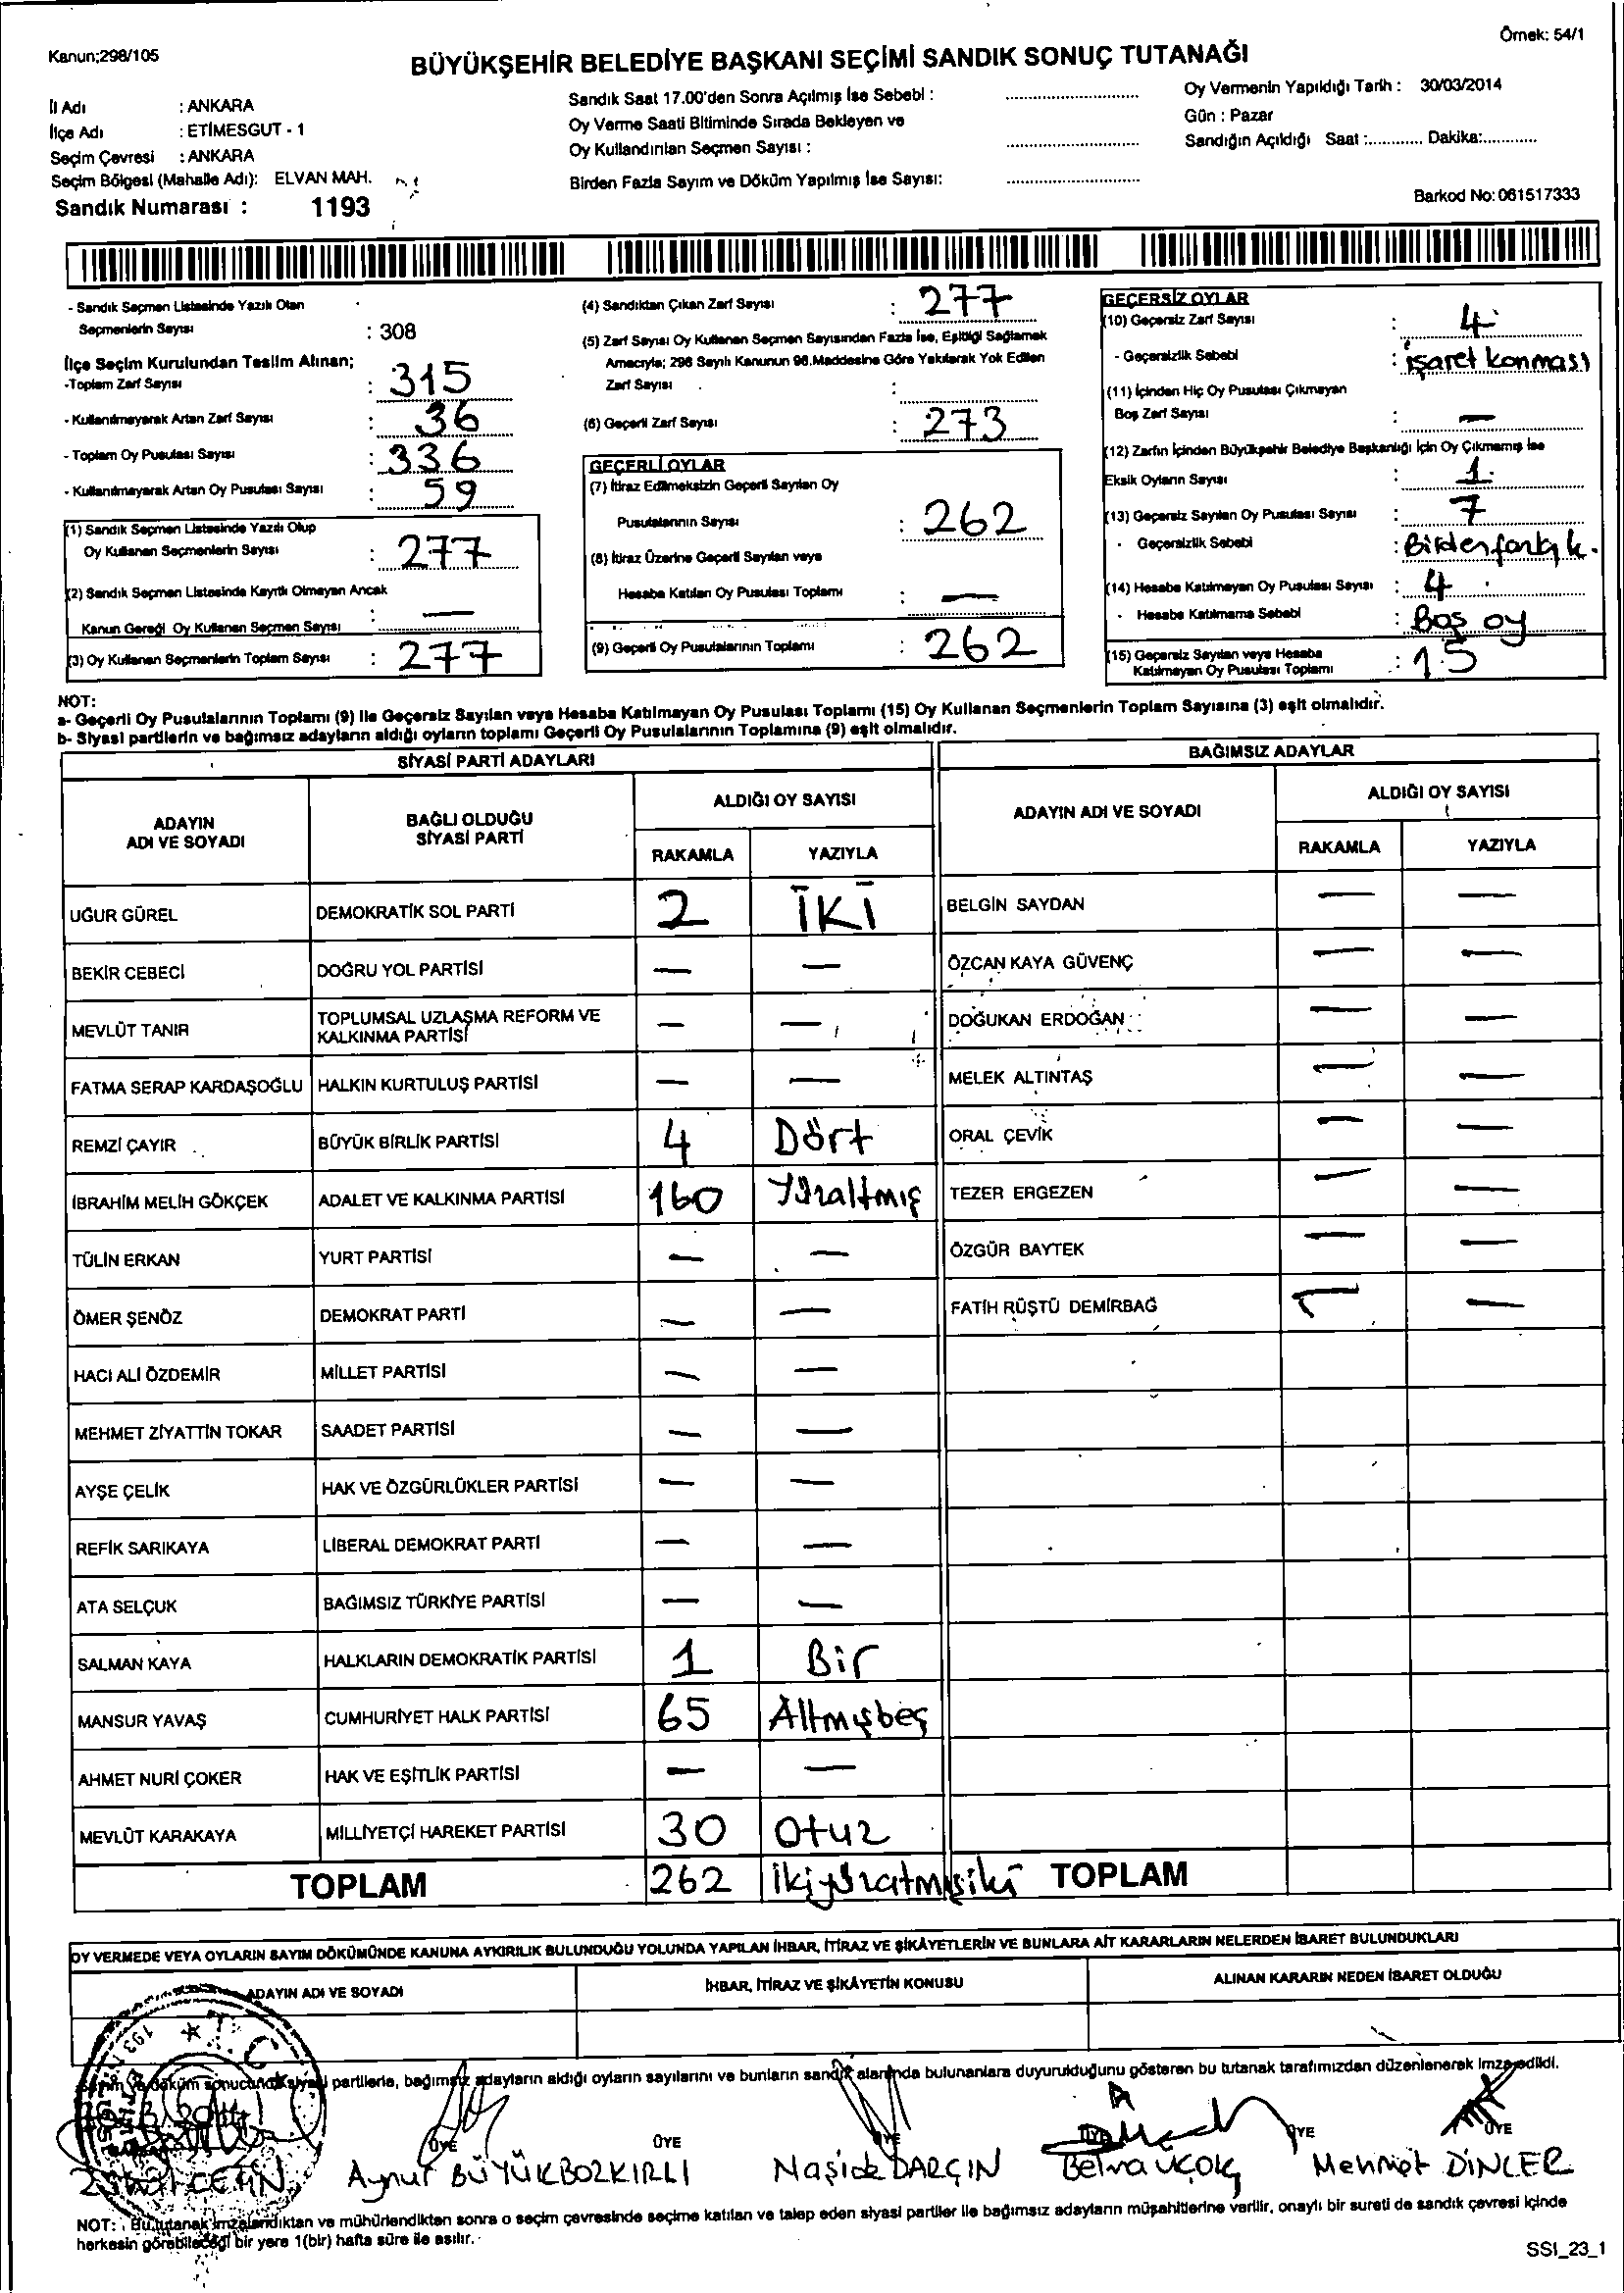 Kanun;298/105
Örnek: 54/1
BÜYÜKŞEHİR BELEDİYE BAŞKANI SEÇİMİ SANDIK SONUÇ TUTANAĞI
İl Adı : ANKARA
İlçe Adı : ETİMESGUT - 1
Seçim Çevresi : ANKARA
Seçim Bölgesi (Mahalle Adı): ELVAN MAH.
Sandık Numarası : 1193
Sandık Saat 17.00'den Sonra Açılmış İse Sebebi : ........................
Oy Verme Saati Bitiminde Sırada Bekleyen ve
Oy Kullandırılan Seçmen Sayısı : ........................
Birden Fazla Sayım ve Döküm Yapılmış İse Sayısı: ........................
Oy Vermenin Yapıldığı Tarih : 30/03/2014
Gün : Pazar
Sandığın Açıldığı Saat :............ Dakika:............
Barkod No: 061517333
- Sandık Seçmen Listesinde Yazılı Olan
Seçmenlerin Sayısı : 308
İlçe Seçim Kurulundan Teslim Alınan;
-Toplam Zarf Sayısı : 315
- Kullanılmayarak Artan Zarf Sayısı : 36
- Toplam Oy Pusulası Sayısı : 336
- Kullanılmayarak Artan Oy Pusulası Sayısı : 59
(1) Sandık Seçmen Listesinde Yazılı Olup
Oy Kullanan Seçmenlerin Sayısı : 277
(2) Sandık Seçmen Listesinde Kayıtlı Olmayan Ancak
Kanun Gereği Oy Kullanan Seçmen Sayısı : —
(3) Oy Kullanan Seçmenlerin Toplam Sayısı : 277
(4) Sandıktan Çıkan Zarf Sayısı : 277
(5) Zarf Sayısı Oy Kullanan Seçmen Sayısından Fazla İse, Eşitliği Sağlamak
Amacıyla; 298 Sayılı Kanunun 98.Maddesine Göre Yakılarak Yok Edilen
Zarf Sayısı :
(6) Geçerli Zarf Sayısı : 273
GEÇERLİ OYLAR
(7) İtiraz Edilmeksizin Geçerli Sayılan Oy
Pusulalarının Sayısı : 262
(8) İtiraz Üzerine Geçerli Sayılan veya
Hesaba Katılan Oy Pusulası Toplamı : —
(9) Geçerli Oy Pusulalarının Toplamı : 262
GEÇERSİZ OYLAR
(10) Geçersiz Zarf Sayısı : 4
- Geçersizlik Sebebi : işaret konması
(11) İçinden Hiç Oy Pusulası Çıkmayan
Boş Zarf Sayısı : —
(12) Zarfın İçinden Büyükşehir Belediye Başkanlığı İçin Oy Çıkmamış İse
Eksik Oyların Sayısı : 1
(13) Geçersiz Sayılan Oy Pusulası Sayısı : 7
- Geçersizlik Sebebi :
(14) Hesaba Katılmayan Oy Pusulası Sayısı : 4
- Hesaba Katılmama Sebebi : Boş oy
(15) Geçersiz Sayılan veya Hesaba
Katılmayan Oy Pusulası Toplamı : 15
NOT:
a- Geçerli Oy Pusulalarının Toplamı (9) ile Geçersiz Sayılan veya Hesaba Katılmayan Oy Pusulası Toplamı (15) Oy Kullanan Seçmenlerin Toplam Sayısına (3) eşit olmalıdır.
b- Siyasi partilerin ve bağımsız adayların aldığı oyların toplamı Geçerli Oy Pusulalarının Toplamına (9) eşit olmalıdır.
SİYASİ PARTİ ADAYLARI
BAĞIMSIZ ADAYLAR
ADAYIN ADI VE SOYADI
BAĞLI OLDUĞU SİYASİ PARTİ
ALDIĞI OY SAYISI
RAKAMLA YAZIYLA
ADAYIN ADI VE SOYADI
ALDIĞI OY SAYISI
RAKAMLA YAZIYLA
UĞUR GÜREL DEMOKRATİK SOL PARTİ 2 İKİ BELGİN SAYDAN — —
BEKİR CEBECİ DOĞRU YOL PARTİSİ — — ÖZCAN KAYA GÜVENÇ — —
MEVLÜT TANIR TOPLUMSAL UZLAŞMA REFORM VE KALKINMA PARTİSİ — — DOĞUKAN ERDOĞAN — —
FATMA SERAP KARDAŞOĞLU HALKIN KURTULUŞ PARTİSİ — — MELEK ALTINTAŞ — —
REMZİ ÇAYIR BÜYÜK BİRLİK PARTİSİ 4 Dört ORAL ÇEVİK — —
İBRAHİM MELİH GÖKÇEK ADALET VE KALKINMA PARTİSİ 160 Yüzaltmış TEZER ERGEZEN — —
TÜLİN ERKAN YURT PARTİSİ — — ÖZGÜR BAYTEK — —
ÖMER ŞENÖZ DEMOKRAT PARTİ — — FATİH RÜŞTÜ DEMİRBAĞ — —
HACI ALİ ÖZDEMİR MİLLET PARTİSİ — —
MEHMET ZİYATTİN TOKAR SAADET PARTİSİ — —
AYŞE ÇELİK HAK VE ÖZGÜRLÜKLER PARTİSİ — —
REFİK SARIKAYA LİBERAL DEMOKRAT PARTİ — —
ATA SELÇUK BAĞIMSIZ TÜRKİYE PARTİSİ — —
SALMAN KAYA HALKLARIN DEMOKRATİK PARTİSİ 1 Bir
MANSUR YAVAŞ CUMHURİYET HALK PARTİSİ 65 Altmışbeş
AHMET NURİ ÇOKER HAK VE EŞİTLİK PARTİSİ — —
MEVLÜT KARAKAYA MİLLİYETÇİ HAREKET PARTİSİ 30 Otuz
TOPLAM 262 ikiyüzatmışiki TOPLAM
OY VERMEDE VEYA OYLARIN SAYIM DÖKÜMÜNDE KANUNA AYKIRILIK BULUNDUĞU YOLUNDA YAPILAN İHBAR, İTİRAZ VE ŞİKÂYETLERİN VE BUNLARA AİT KARARLARIN NELERDEN İBARET BULUNDUKLARI
ADAYIN ADI VE SOYADI İHBAR, İTİRAZ VE ŞİKÂYETİN KONUSU ALINAN KARARIN NEDEN İBARET OLDUĞU
Sayım ve döküm sonucunda siyasi partilerle, bağımsız adayların aldığı oyların sayılarını ve bunların sandık alanında bulunanlara duyurulduğunu gösteren bu tutanak tarafımızdan düzenlenerek imza edildi.
ÜYE ÜYE ÜYE ÜYE ÜYE
ÇETİN Aynur BÜYÜKBOZKIRLI Naşide DARÇIN Mehmet DİNÇER
NOT: Bu tutanak imzalandıktan ve mühürlendikten sonra o seçim çevresinde seçime katılan ve talep eden siyasi partiler ile bağımsız adayların müşahitlerine verilir, onaylı bir sureti de sandık çevresi içinde
herkesin görebileceği bir yere 1(bir) hafta süre ile asılır.
SSI_23_1